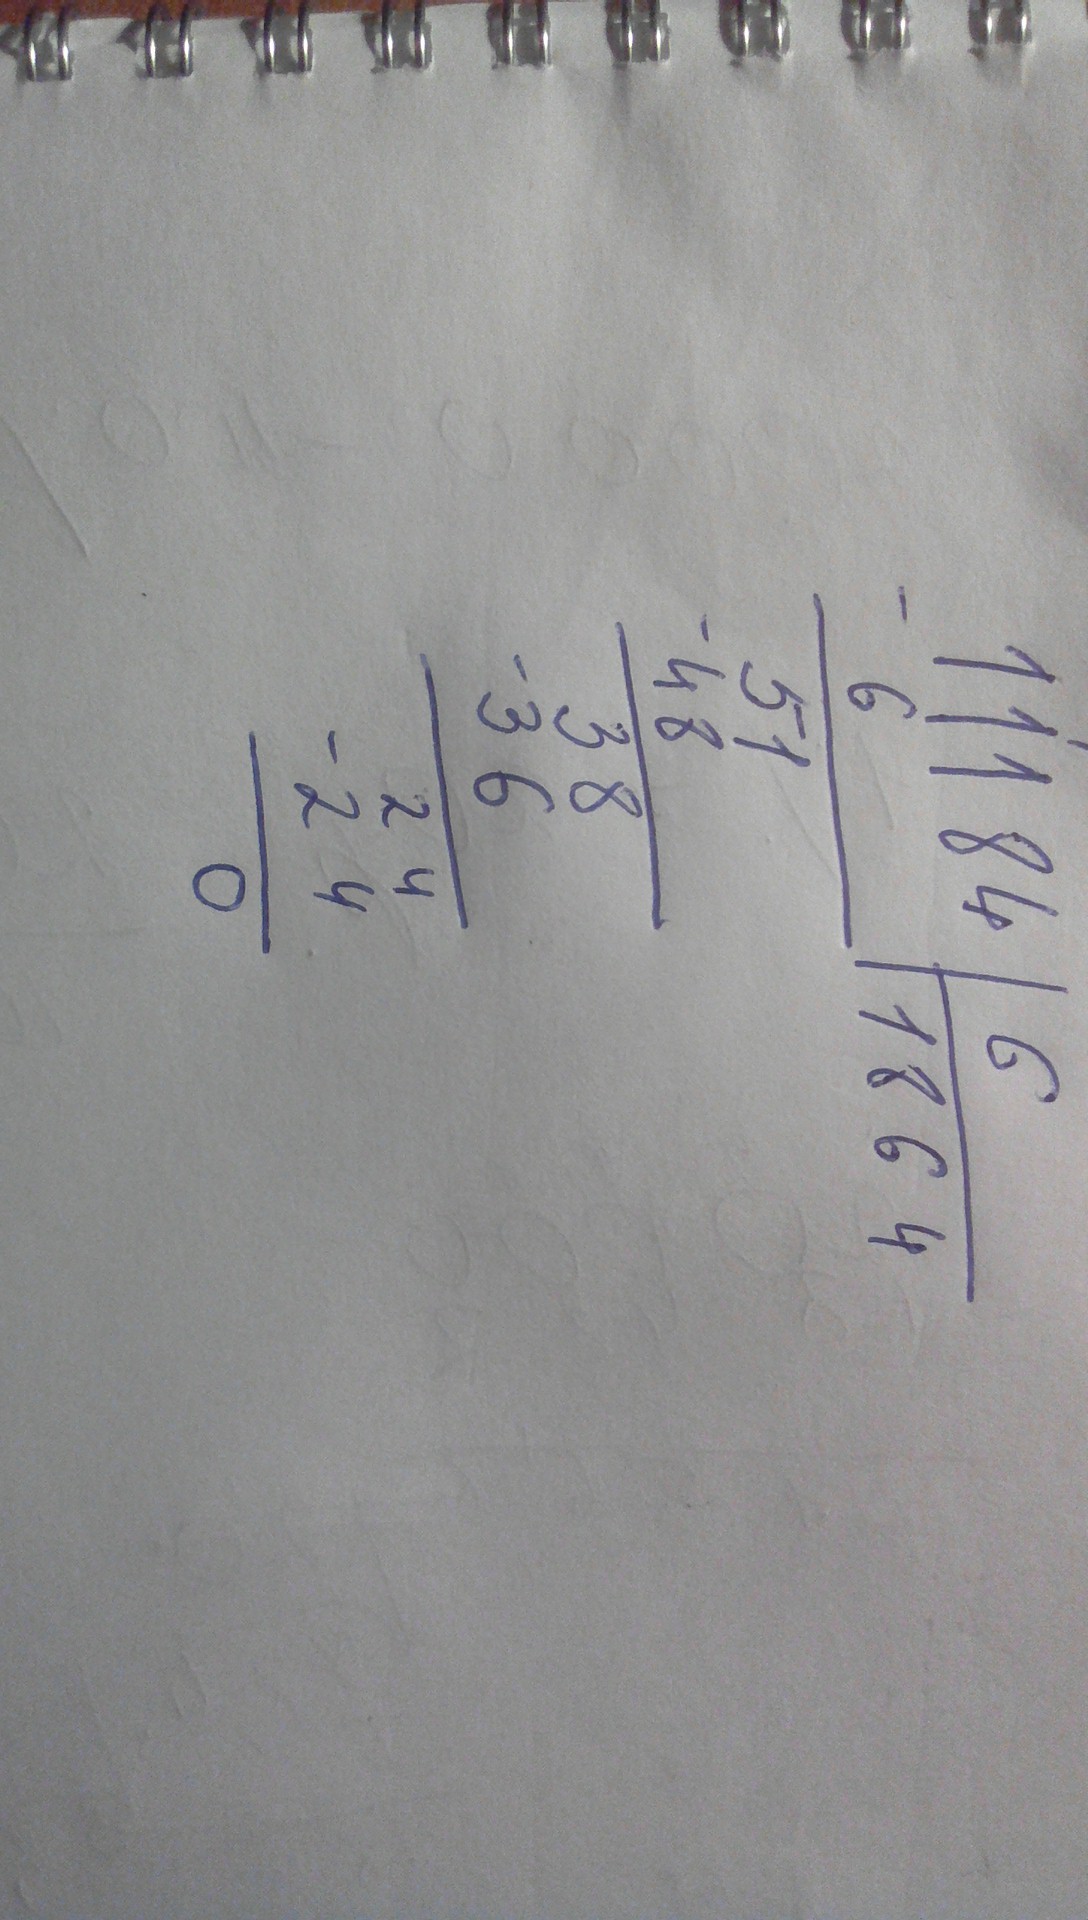 11184 | 6
- 6 | 1864
51
-48
38
-36
24
-24
0